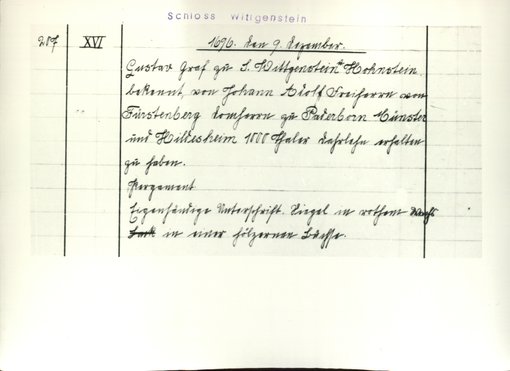 Schloss Wittgenstein
257 XVI 1696. den 9. Dezember.
Gustav Graf zu S. Wittgenstein Hohnstein
bekennt, von Johann Adolf Freiherrn von
Fürstenberg Domherrn zu Paderborn Münster
und Hildesheim 1000 Thaler Darlehn erhalten
zu haben.
Pergament
Eigenhändige Unterschrift. Siegel in rothem Wachs
in einer hölzernen Büchse.